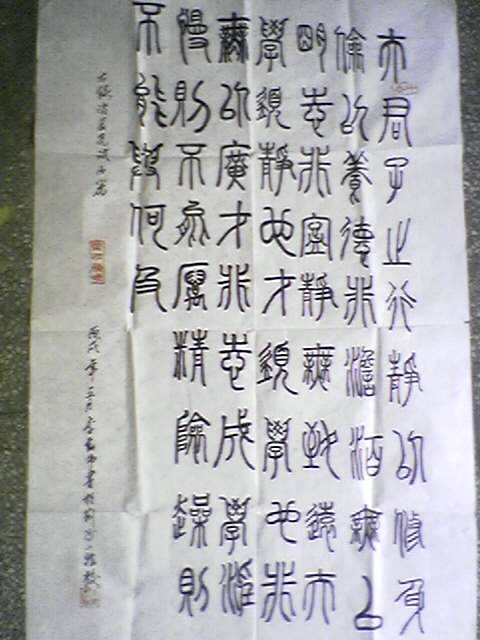 夫君子之行靜以修身
儉以養德非澹泊無以
明志非寧靜無致遠夫
學須靜也才須學也非
無以廣才非志成學淫
慢則不能厲精險躁則
不能何及
右錄諸葛亮誡子篇
丙戌年三月書於